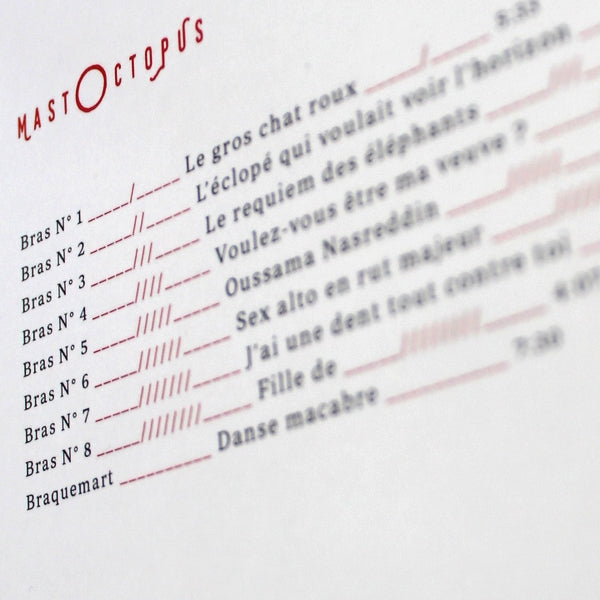 MASTOCTOPUS
Bras N° 1 _____/_____ Le gros chat roux _____/_____ 5:55
Bras N° 2 _____//_____ L'éclopé qui voulait voir l'horizon
Bras N° 3 _____///_____ Le requiem des éléphants
Bras N° 4 _____////_____ Voulez-vous être ma veuve ?
Bras N° 5 _____/////_____ Oussama Nasreddin
Bras N° 6 _____//////_____ Sex alto en rut majeur
Bras N° 7 _____///////_____ J'ai une dent tout contre toi
Bras N° 8 _____////////_____ Fille de _____////////_____
Braquemart __________ Danse macabre __________ 7:30